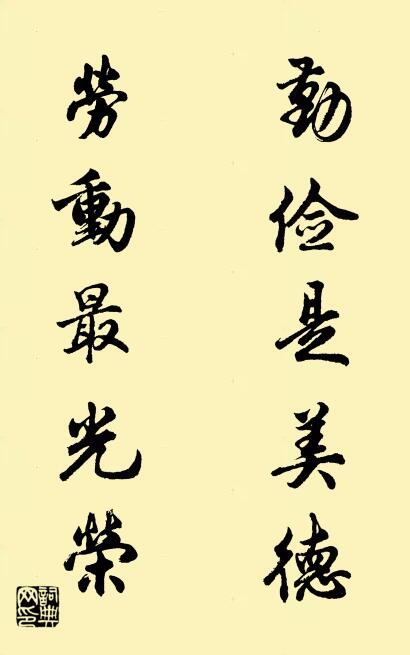 勤俭是美德
勞動最光榮
詞典网印